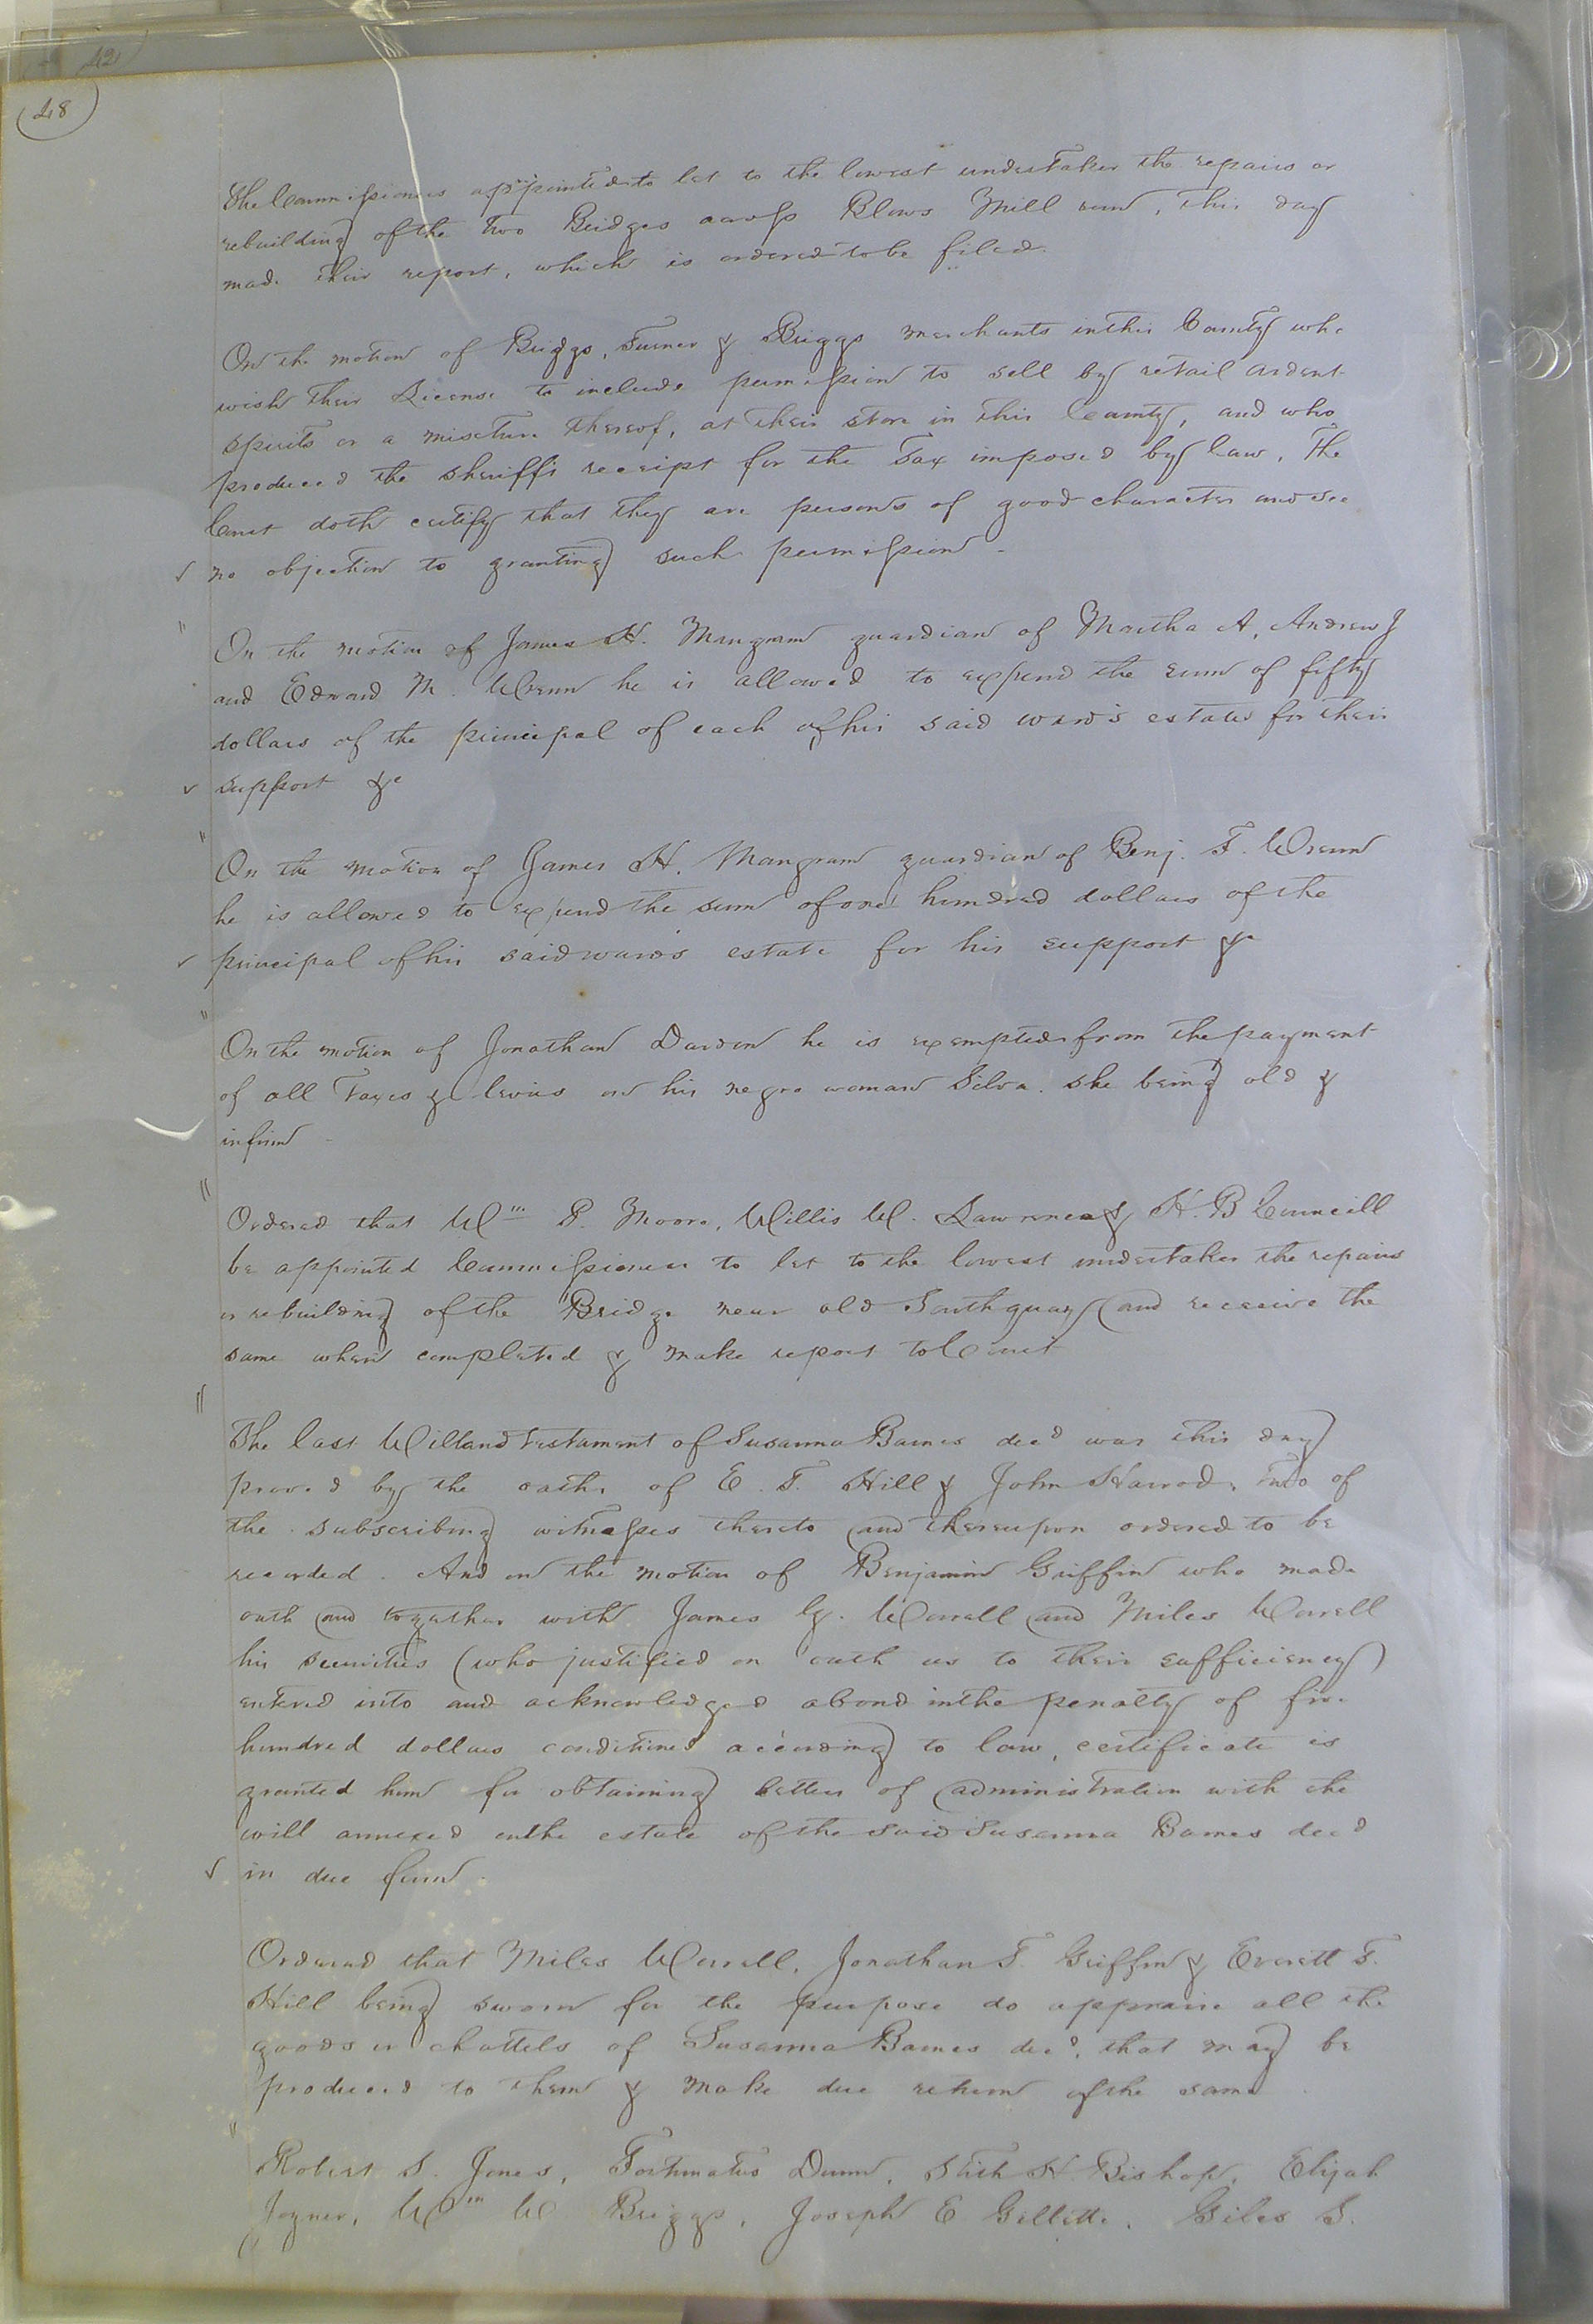 42
48
The Commissioners appointed to let to the lowest undertaker the repairs or
rebuilding of the two Bridges across Blows Mill run, this day
made their report, which is ordered to be filed.
On the motion of Briggs, Turner & Briggs merchants in this County who
wish their License to include permission to sell by retail ardent
spirits or a mixture thereof, at their store in this County, and who
produced the sheriffs receipt for the Tax imposed by law, The
Court doth certify that they are persons of good character and see
no objection to granting such permission -
On the motion of James H. Mangram guardian of Martha A, Andrew J
and Edward M. Wrenn he is allowed to expend the sum of fifty
dollars of the principal of each of his said ward's estates for their
support &c
On the motion of James H. Mangram guardian of Benj. F. Wrenn
he is allowed to expend the sum of one hundred dollars of the
principal of his said wards estate for his support &c
On the motion of Jonathan Darden he is exempted from the payment
of all Taxes & levies on his negro woman Silva. she being old &
infirm -
Ordered that Wm P. Moore, Willis W. Lawrence & H. B Councill
be appointed Commissioners to let to the lowest undertaker the repairs
or rebuilding of the Bridge near old Southquay and receive the
same when completed & make report to Court
The last Will and testament of Susanna Barnes decd was this day
proved by the oaths of E. T. Hill & John Harrod, two of
the subscribing witnesses thereto and thereupon ordered to be
recorded. And on the motion of Benjamin Griffin who made
oath and together with James G. Worrell and Miles Worrell
his securities (who justified on oath as to their sufficiency)
entered into and acknowledged a bond in the penalty of five
hundred dollars conditioned according to law, certificate is
granted him for obtaining letters of administration with the
will annexed on the estate of the said Susanna Barnes decd
in due form.
Ordered that Miles Worrell, Jonathan T. Griffin & Everett T.
Hill being sworn for the purpose do appraise all the
goods or chattels of Susanna Barnes decd, that may be
produced to them & make due return of the same
Robert S. Jones, Fortunatus Dunn, Stith H Bishop, Elijah
Joyner, Wm W Briggs, Joseph E Gillette, Giles S.